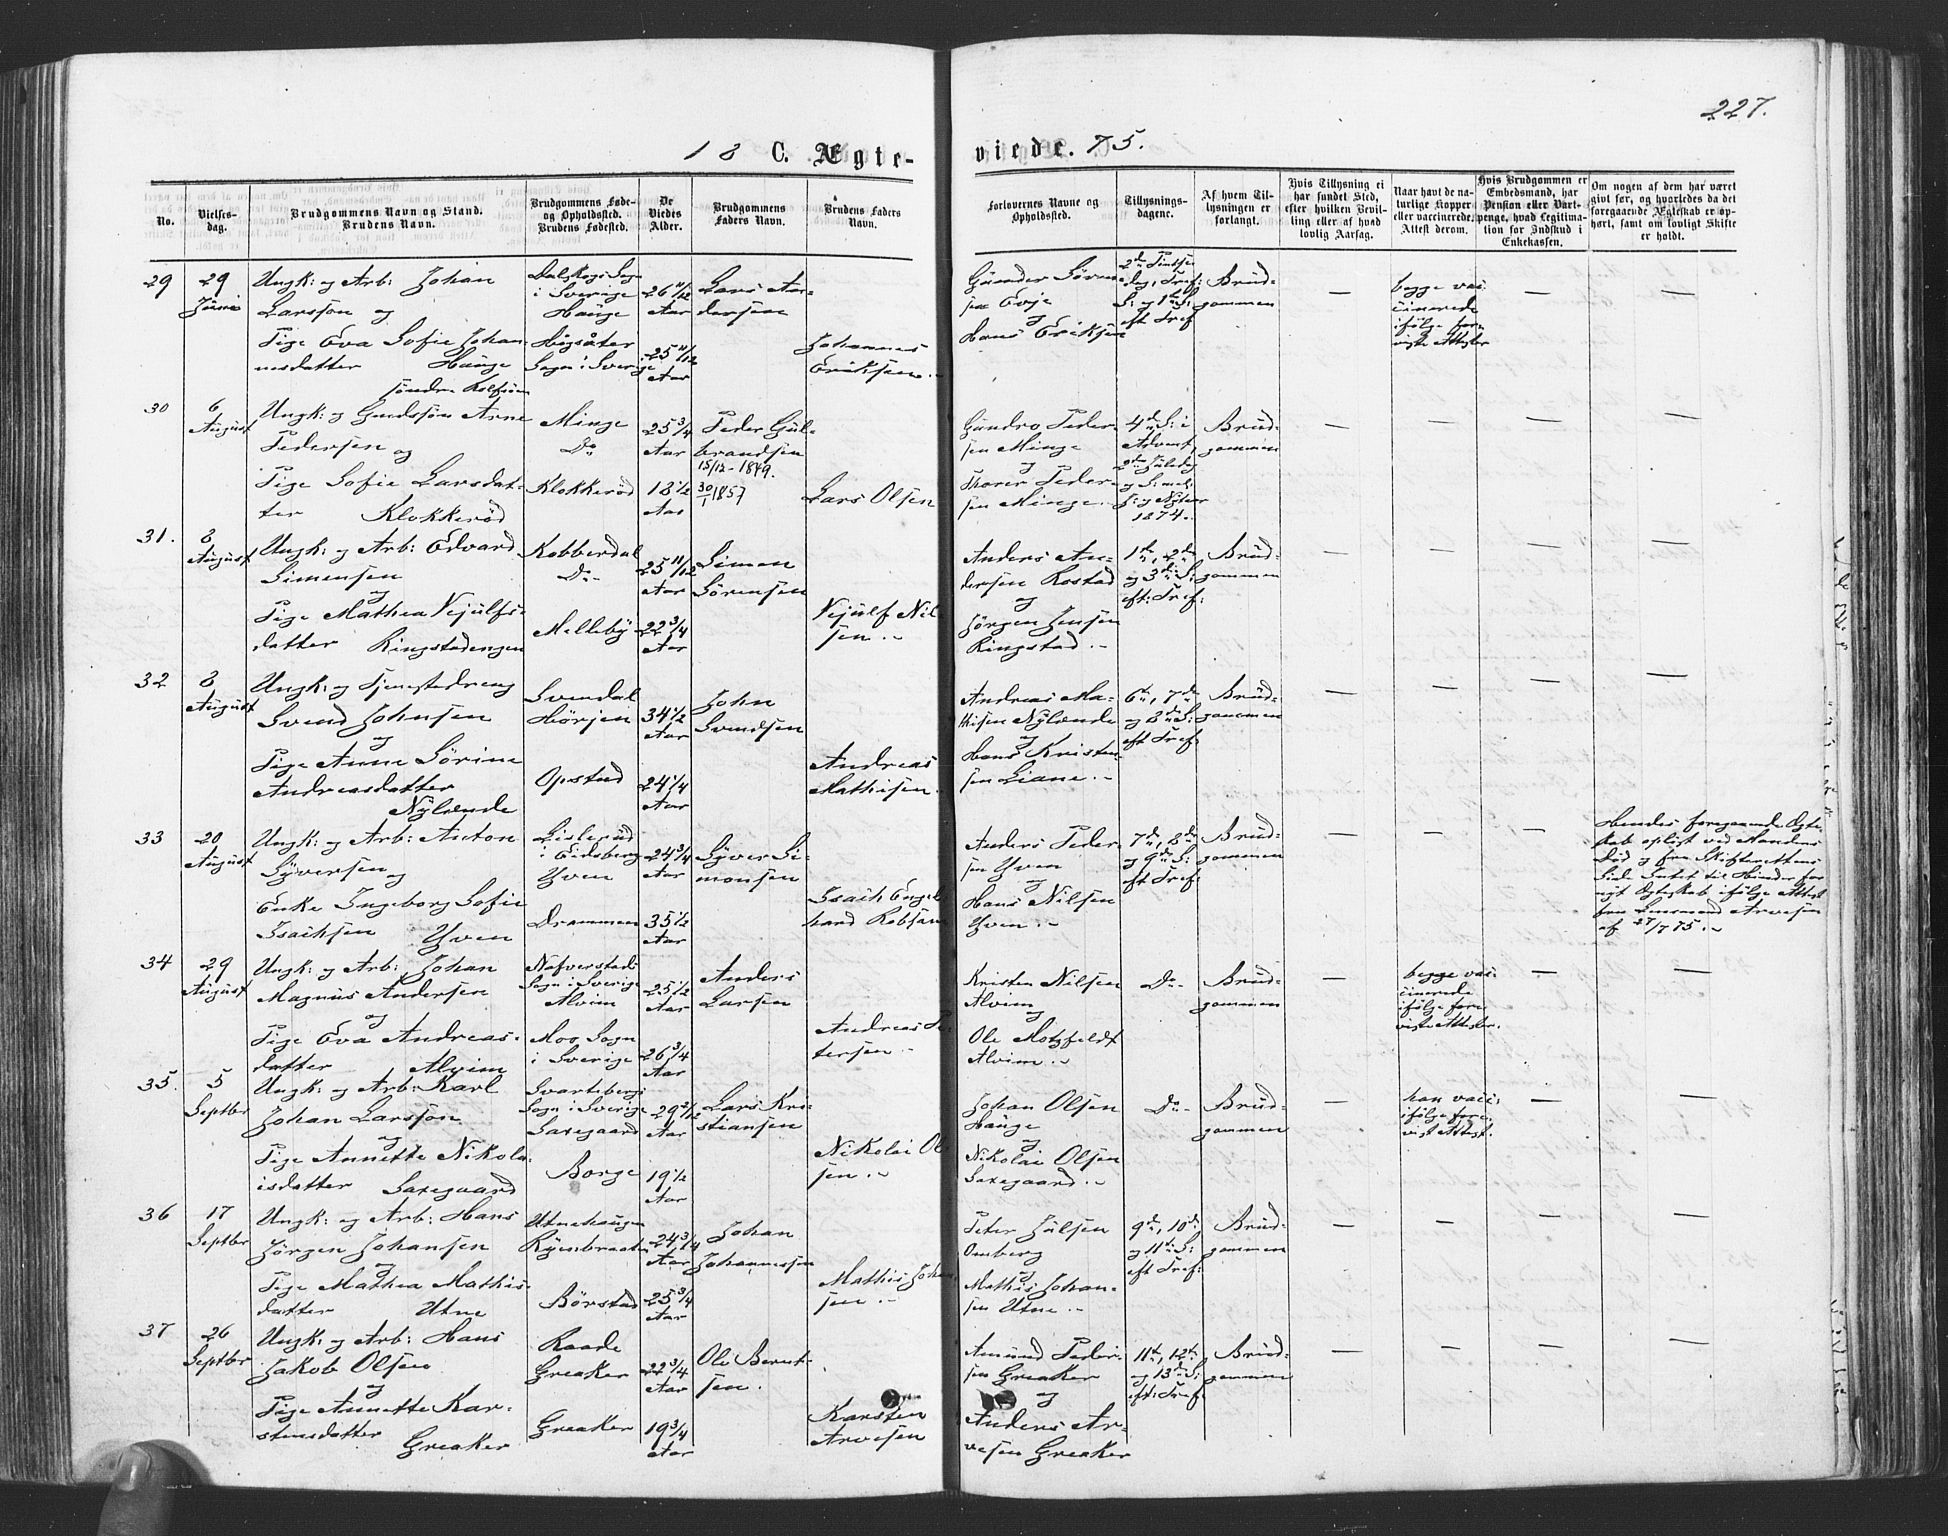 227.
18 C. Ægte-
viede. 75.
No.
Vielses-
dag.
Brudgommens Navn og Stand.
Brudens Navn.
Brudgommens Føde-
og Opholdsted.
Brudens Fødested.
De
Viedes
Alder.
Brudgommens
Faders Navn.
Brudens Faders
Navn.
Forlovernes Navne og
Opholdsted.
Tillysnings-
dagene.
Af hvem Til-
lysningen er
forlangt.
Hvis Tillysning ei
har fundet Sted,
efter hvilken Bevil-
ling eller af hvad
lovlig Aarsag.
Naar havt de na-
turlige Kopper
eller vaccinerede.
Attest derom.
Hvis Brudgommen er
Embedsmand, har
Pension eller Vart-
penge, hvad Legitima-
tion for Indskud i
Enkekassen.
Om nogen af dem har været
givt før, og hvorledes da det
foregaaende Ægteskab er op-
hørt, samt om lovligt Skifte
er holdt.
29
29
Juni
Ungk: og Arb: Johan
Larsson og
Pige Eva Sofie Johan-
nesdatter Hauge
søndre Kolfsøen
Dalskogs Sogn
i Sverige
Hauge
Högsäter
Sogn i Sverige
26 11/12
Aar
25 11/12
Aar
Lars An-
dersen
Johannes
Eriksen.
Gunder Søren-
sen Evje
og
Hans Eriksen
2den Pintse-
dag, Tref:
S: og 1ste S:
eft Tref
Brud-
gommen
—
begge vac-
cinerede
ifølge fore-
viste Attester
—
—
30
6
August
Ungk: og Gaardssøn Arne
Pedersen og
Pige Sofie Larsdat-
ter Klokkerød
Minge
Do
Klokkerød
25 3/4
Aar
18 1/2
Aar
Peder Gul-
brandsen
15/12-1849.
30/1 1857
Lars Olsen
Gundro Peder-
sen Minge
og
Thorer Peder-
sen Minge.
4de S: i
Advent,
2den Juledag
og S: mel:
J: og Nytaar
1874.
Brud-
gommen
—
—
—
—
31.
8
August
Ungk: og Arb: Edvard
Simensen
og
Pige Mathea Vejulfs-
datter Ringstadengen
Kobberdal
Do
Melleby
25 11/12
Aar
22 3/4
Aar
Simen
Sørensen
Vejulf Nil-
sen.
Anders An-
dersen Rostad
og
Jørgen Jensen
Ringstad.
1ste, 2den
og 3die S:
eft: Tref:
Brud-
gommen
—
—
—
—
32
8
August
Ungk: og Tjenestedreng
Svend Johnsen
og
Pige Anne Sørine
Andreasdatter
Nylænde
Svendal
Hørjen
Opstad
34 1/2
Aar
24 1/4
Aar
John
Svendsen
Andreas
Mathisen.
Andreas Ma-
thisen Nylænde
og
Hans Kristen-
sen Liane.
6te, 7de
og 8de S:
eft Tref:
Brud-
gommen
—
—
—
—
33
20
August
Ungk: og Arb: Anton
Syversen
og
Enke Ingeborg Sofie
Isachsen Yven
Lislerud
i Eidsberg
Yven
Drammen
24 3/4
Aar
35 1/2
Aar
Syver Si-
monsen
Isach Engel-
hard Robsam
Anders Peder-
sen Yven
og
Hans Nilsen
Yven.
7de, 8de
og 9de S:
eft Tref:
Brud-
gommen
—
—
—
Hendes foregaaende Ægte-
skab opløst ved Mandens
Død og fra Skifterettens
Side Intet til Hinder for
nyt Ægteskab ifølge Attest
fra Lensmand Arvesen
af 27/7 75.
34
29
August
Ungk: og Arb: Johan
Magnus Andersen
og
Pige Eva Andreas-
datter Alvim
Nafverstads
Sogn i Sverige
Alvim
Moo Sogn
i Sverige
25 1/2
Aar
26 3/4
Aar
Anders
Larsen
Andreas Pe-
tersen.
Kristen Nilsen
Alvim
og
Ole Motzfeldt
Alvim.
Do
Brud-
gommen
—
begge vac-
cinerede
ifølge fore-
viste Attester.
—
—
35.
5
Septbr
Ungk: og Arb: Karl
Johan Larsson
og
Pige Annette Nikola-
isdatter Saxegaard
Svarteborgs
Sogn i Sverige
Saxegaard
Borge
29 2/12
Aar
19 1/2
Aar
Lars Kri-
stiansen
Nikolai Ol-
sen.
Johan Olsen
Hauge
og
Nikolai Olsen
Saxegaard.
Do
Brud-
gommen
—
han vacc:
ifølge fore-
vist Attest.
—
—
36
17
Septbr
Ungk: og Arb: Hans
Jørgen Johansen
og
Pige Mathea Mathis-
datter Utne
Utnehaugen
Kyenbraaten
Børstad
24 3/4
Aar
25 3/4
Aar
Johan
Johannessen
Mathis Johan-
sen.
Peter Julsen
Omberg
og
Mathis Johan-
sen Utne.
9de, 10de
og 11te S:
eft Tref:
Brud-
gommen
—
—
—
—
37
26
Septbr
Ungk: og Arb: Hans
Jakob Olsen
og
Pige Annette Kar-
stensdatter Greaker
Raade
Greaker
Greaker
22 3/4
Aar
19 3/4
Aar
Ole Bernt-
sen.
Karsten
Arvesen
Amund Peder-
sen Greaker
og
Anders Ar-
vesen Greaker
11te, 12te
og 13de S:
eft: Tref:
Brud-
gommen
—
—
—
—